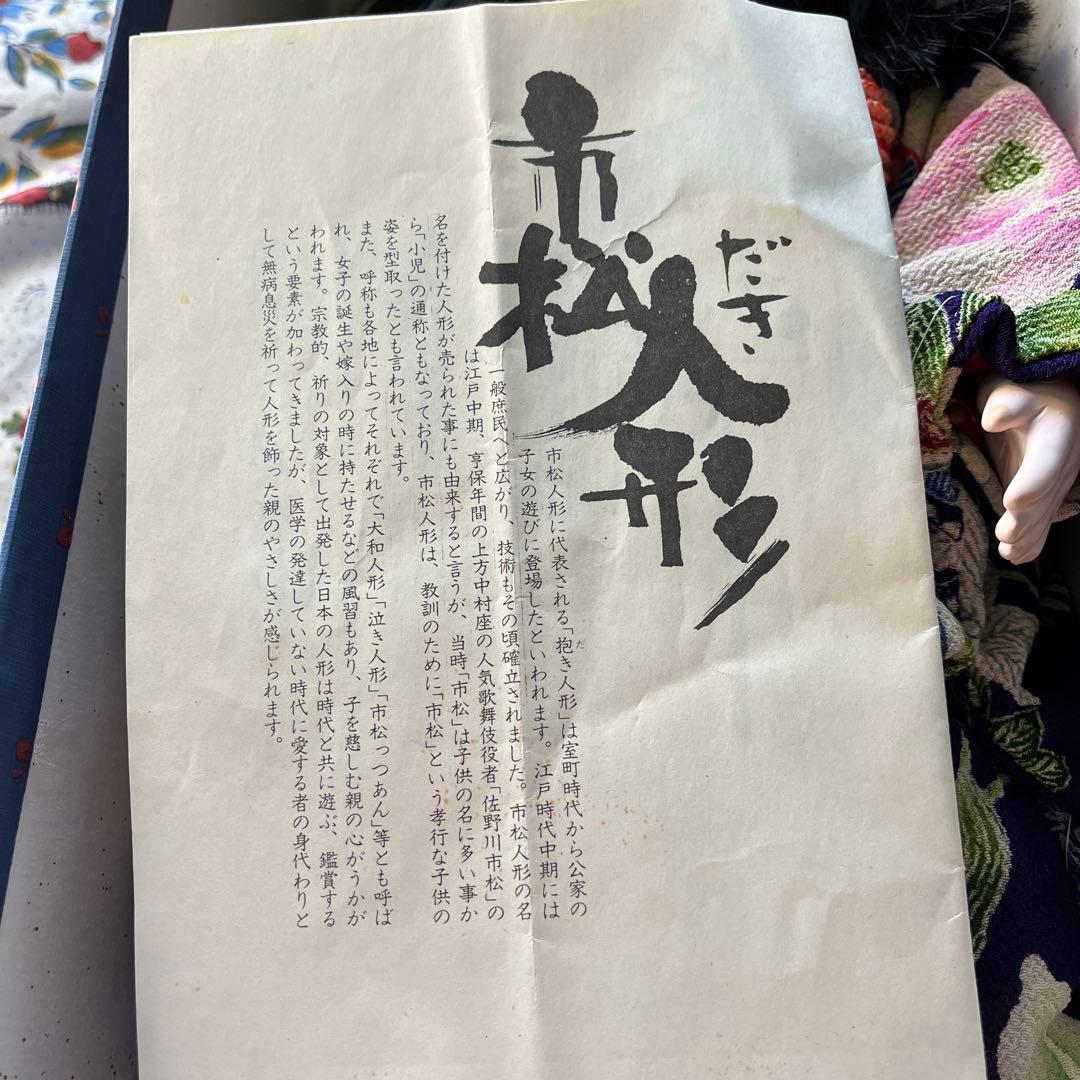 だき
市松人形
市松人形に代表される「抱き人形」は室町時代から公家の
だ
子女の遊びに登場したといわれます。江戸時代中期には
一般庶民へと広がり、技術もその頃確立されました。市松人形の名
は江戸中期、享保年間の上方中村座の人気歌舞伎役者「佐野川市松」の
名を付けた人形が売られた事にも由来すると言うが、当時「市松」は子供の名に多い事か
ら「小児」の通称ともなっており、市松人形は、教訓のために「市松」という孝行な子供の
姿を型取ったとも言われています。
また、呼称も各地によってそれぞれで「大和人形」「泣き人形」「市松っつあん」等とも呼ば
れ、女子の誕生や嫁入りの時に持たせるなどの風習もあり、子を慈しむ親の心がうかが
われます。宗教的、祈りの対象として出発した日本の人形は時代と共に遊ぶ、鑑賞する
という要素が加わってきましたが、医学の発達していない時代に愛する者の身代わりと
して無病息災を祈って人形を飾った親のやさしさが感じられます。